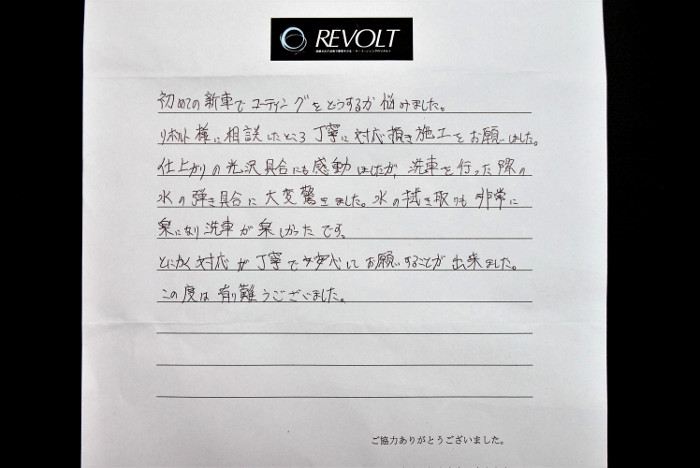 REVOLT
初めての新車でコーティングをどうするか悩みました。
リボルト様に相談したところ丁寧に対応頂き施工をお願いしました。
仕上がりの光沢具合にも感動しましたが、洗車を行った際の
水の弾き具合に大変驚きました。水の拭き取りも非常に
楽になり洗車が楽しかったです。
とにかく対応が丁寧で安心してお願いすることが出来ました。
この度は有り難うございました。
ご協力ありがとうございました。